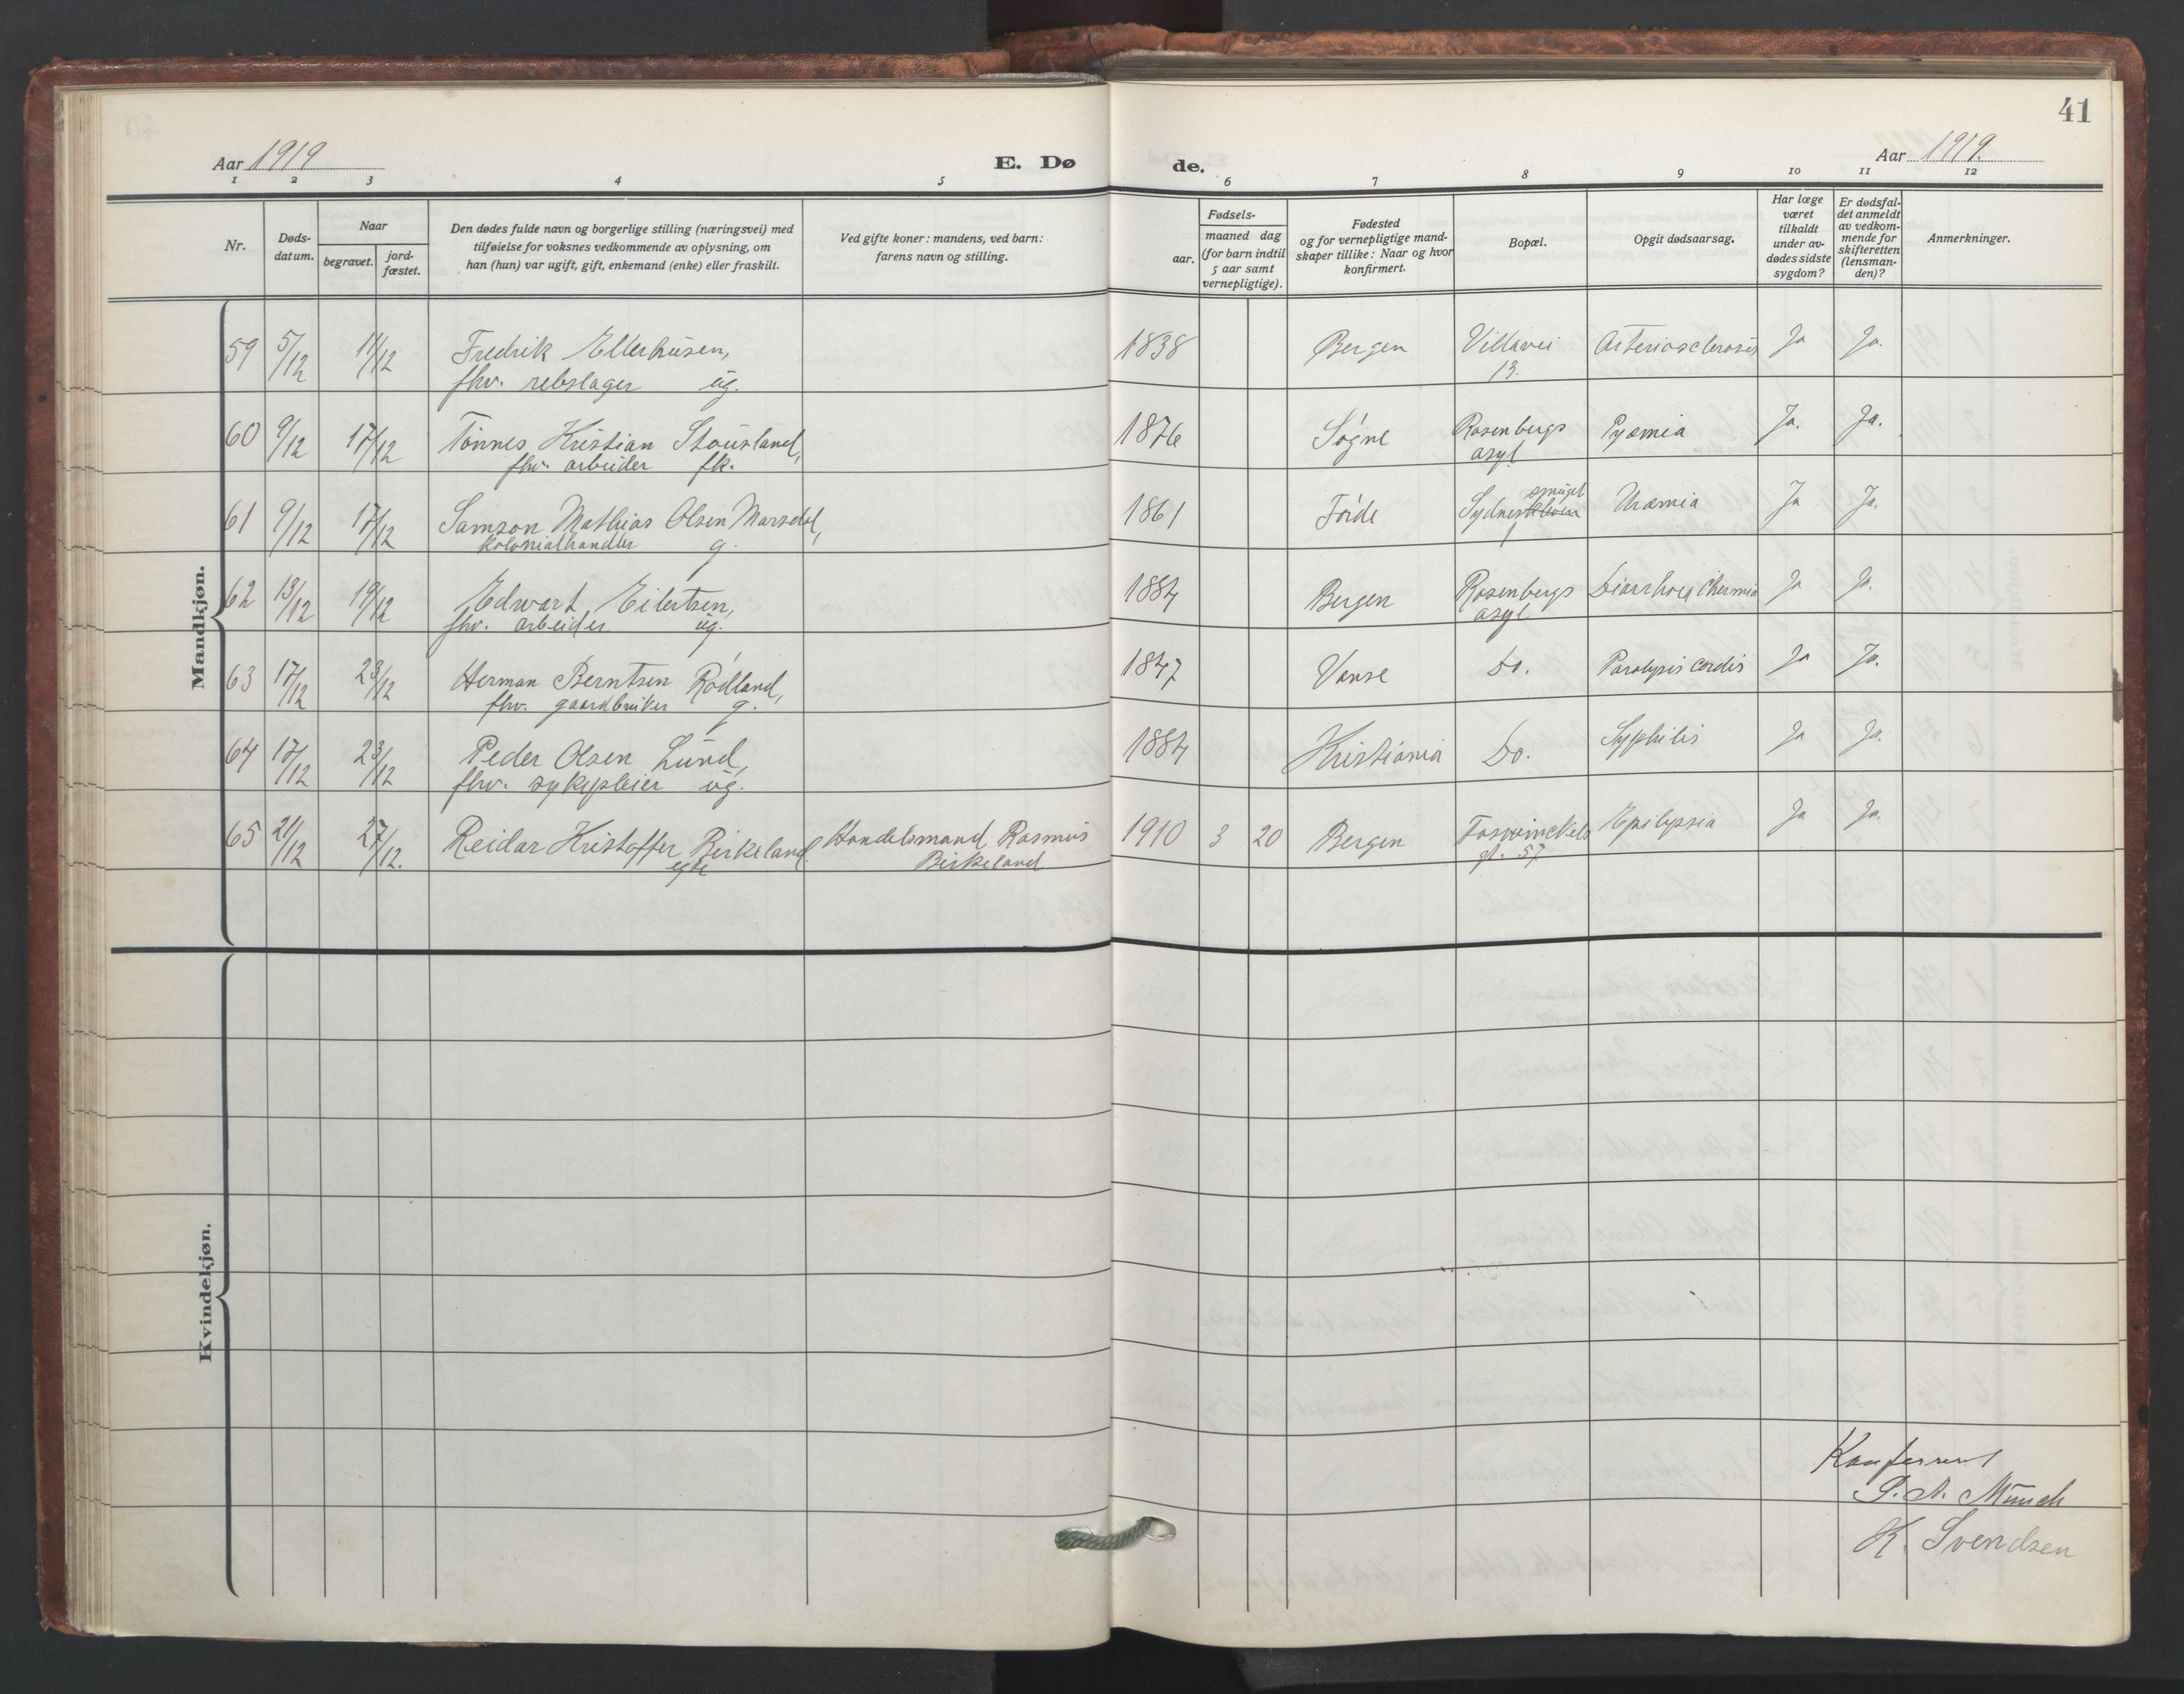 41
Aar 1919
E. Dø
de.
Aar 1919.
1 2 3 4 5
6 7 8 9 10 11 12
Nr.
Døds-
datum.
Naar
begravet.
jord-
fæstet.
Den dødes fulde navn og borgerlige stilling (næringsvei) med
tilføielse for voksnes vedkommende av oplysning, om
han (hun) var ugift, gift, enkemand (enke) eller fraskilt.
Ved gifte koner: mandens, ved barn:
farens navn og stilling.
Fødsels-
aar.
maaned dag
(for barn indtil
5 aar samt
vernepligtige).
Fødested
og for vernepligtige mand-
skaper tillike: Naar og hvor
konfirmert.
Bopæl.
Opgit dødsaarsag.
Har læge
været
tilkaldt
under av-
dødes sidste
sygdom?
Er dødsfal-
det anmeldt
av vedkom-
mende for
skifteretten
(lensman-
den)?
Anmerkninger.
Mandkjøn.
59 5/12 11/12 Fredrik Ellerhusen, 1838 Bergen Villavei Arteriosclerosis Ja Ja.
fhv. rebslager ug. 13.
60 9/12 17/12 Tønnes Kristian Stousland, 1876 Søgne Rosenbergs Pyæmia Ja. Ja.
fhv. arbeider fk. asyl
61 9/12 17/12 Samson Mathias Olsen Marsdal, 1861 Førde Sydnessmuget Uræmia Ja Ja.
kolonialhandler g. 1
62 13/12 19/12 Edwart Eilertsen, 1884 Bergen Rosenbergs Diarrhoea Ja Ja.
fhv. arbeider ug. asyl
63 17/12 23/12 Herman Berntsen Rødland, 1847 Vanse Do. Paralysis cordis Ja Ja.
fhv. gaardbruker g.
64 17/12 23/12 Peder Olsen Lund, 1884 Kristiania Do. Syphilis Ja Ja.
fhv. sykepleier ug.
65 21/12 27/12. Reidar Kristoffer Birkeland Handelsmand Rasmus 1910 3 20 Bergen Fosswinckels Epilepsia Ja Ja.
egte Birkeland gt. 57
Kvindekjøn.
Konferert
P. A. Munch
K. Svendsen